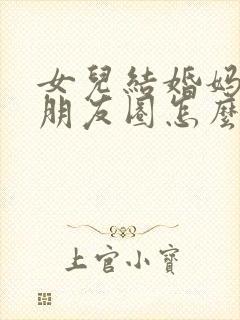 女兒結婚媽
朋友圈怎麼
上官小寶